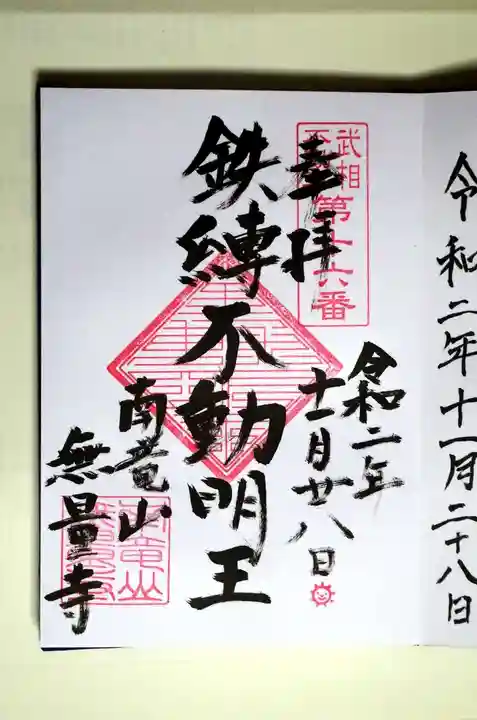 令和二年十一月二十八日
武相
不
第十六番
奉拝
令和二年
十一月廿八日
鉄縛不動明王
南竜山
無量寺
南竜山